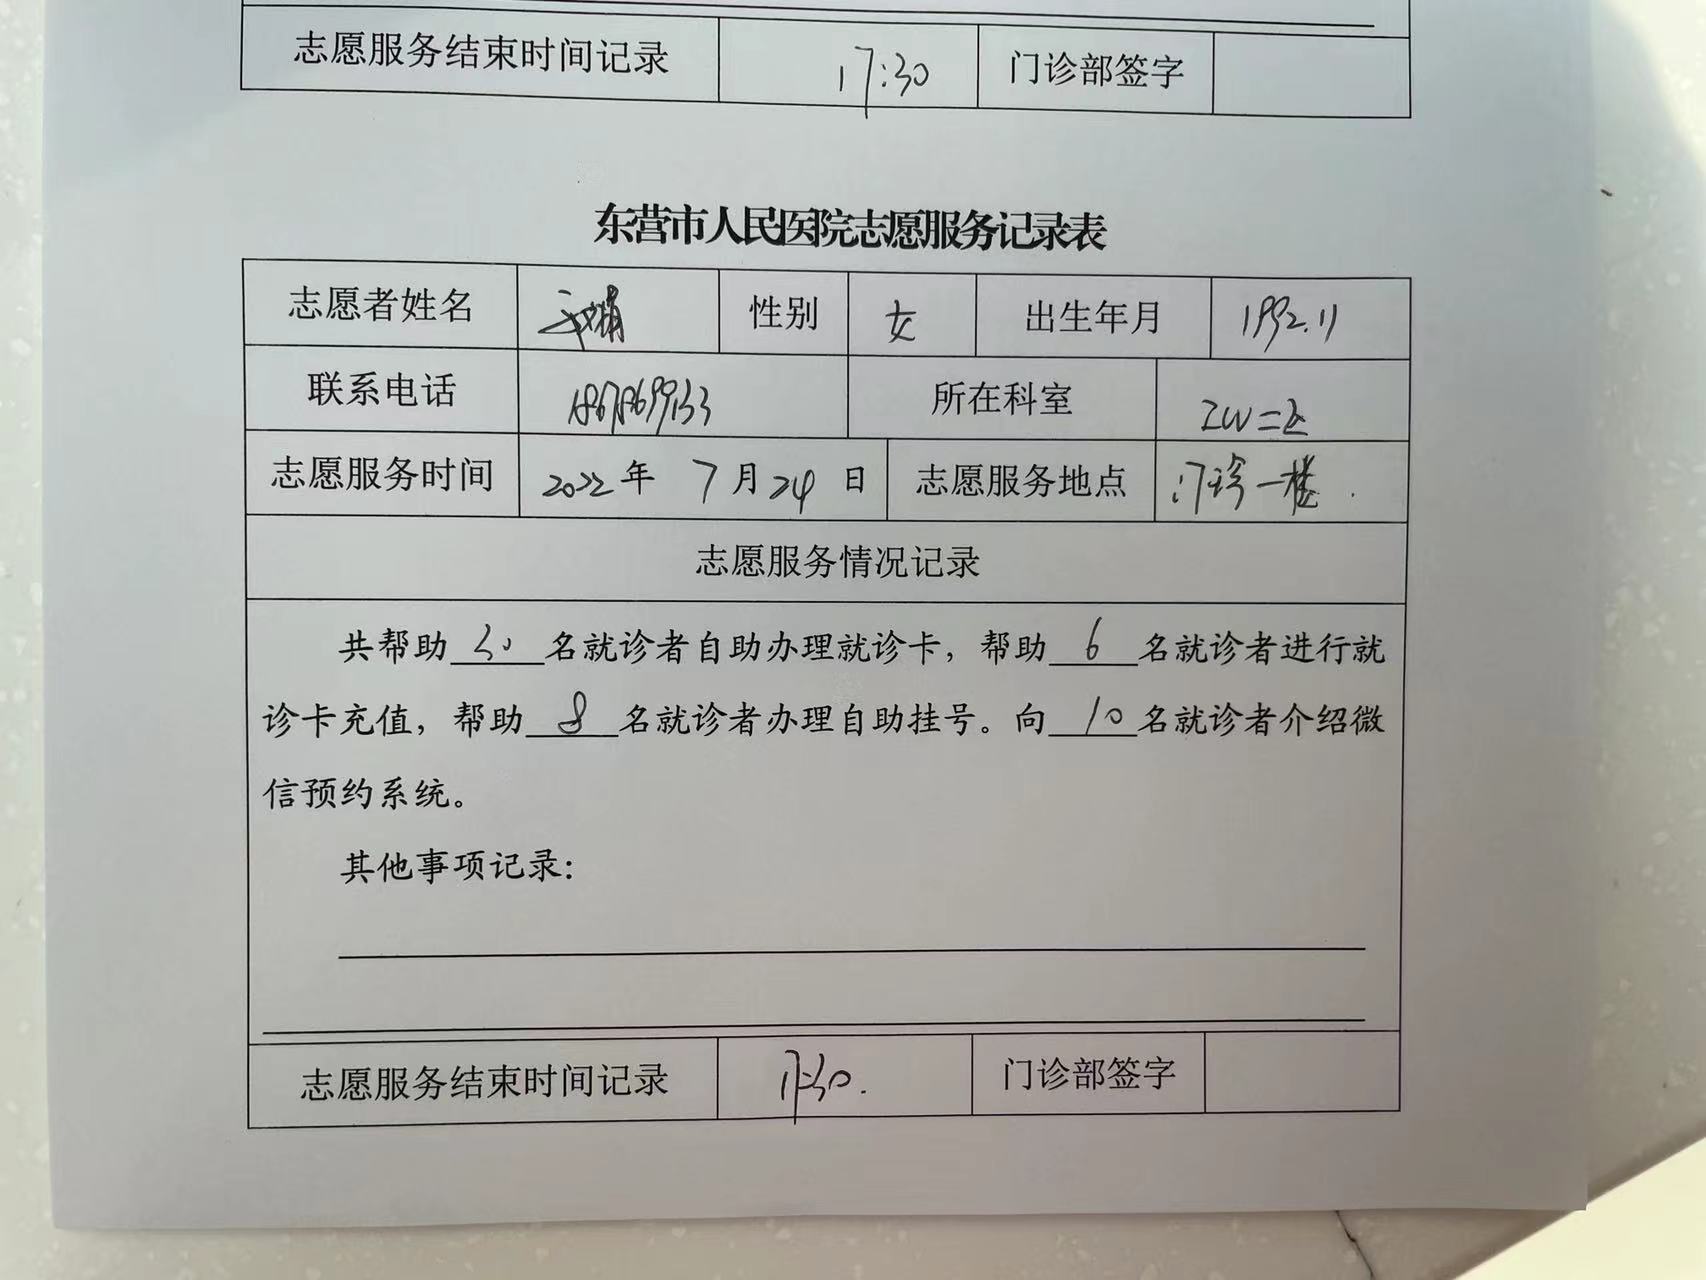 志愿服务结束时间记录 17:30 门诊部签字
东营市人民医院志愿服务记录表
志愿者姓名 性别 女 出生年月 1992.11
联系电话 所在科室
志愿服务时间 2022年 7月24日 志愿服务地点 门诊一楼.
志愿服务情况记录
共帮助 30 名就诊者自助办理就诊卡，帮助 6 名就诊者进行就
诊卡充值，帮助 8 名就诊者办理自助挂号。向 10 名就诊者介绍微
信预约系统。
其他事项记录：
志愿服务结束时间记录 17:30. 门诊部签字